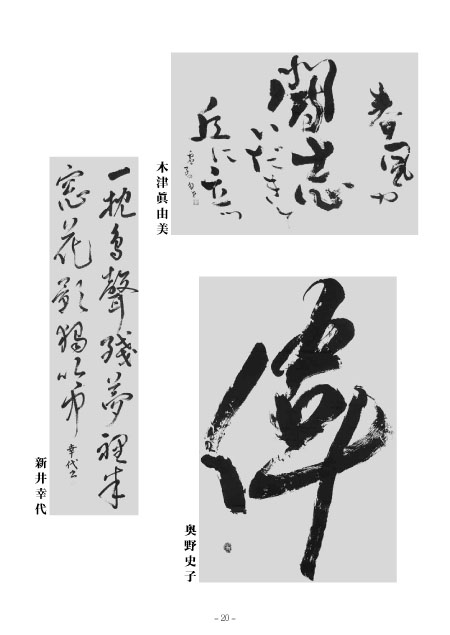 春風や
闘志
いだきて
丘に立つ
木津眞由美
一枕鳥聲殘夢裡半
窓花影獨吟中
幸代書
新井幸代
偉
奥野史子
– 20 –